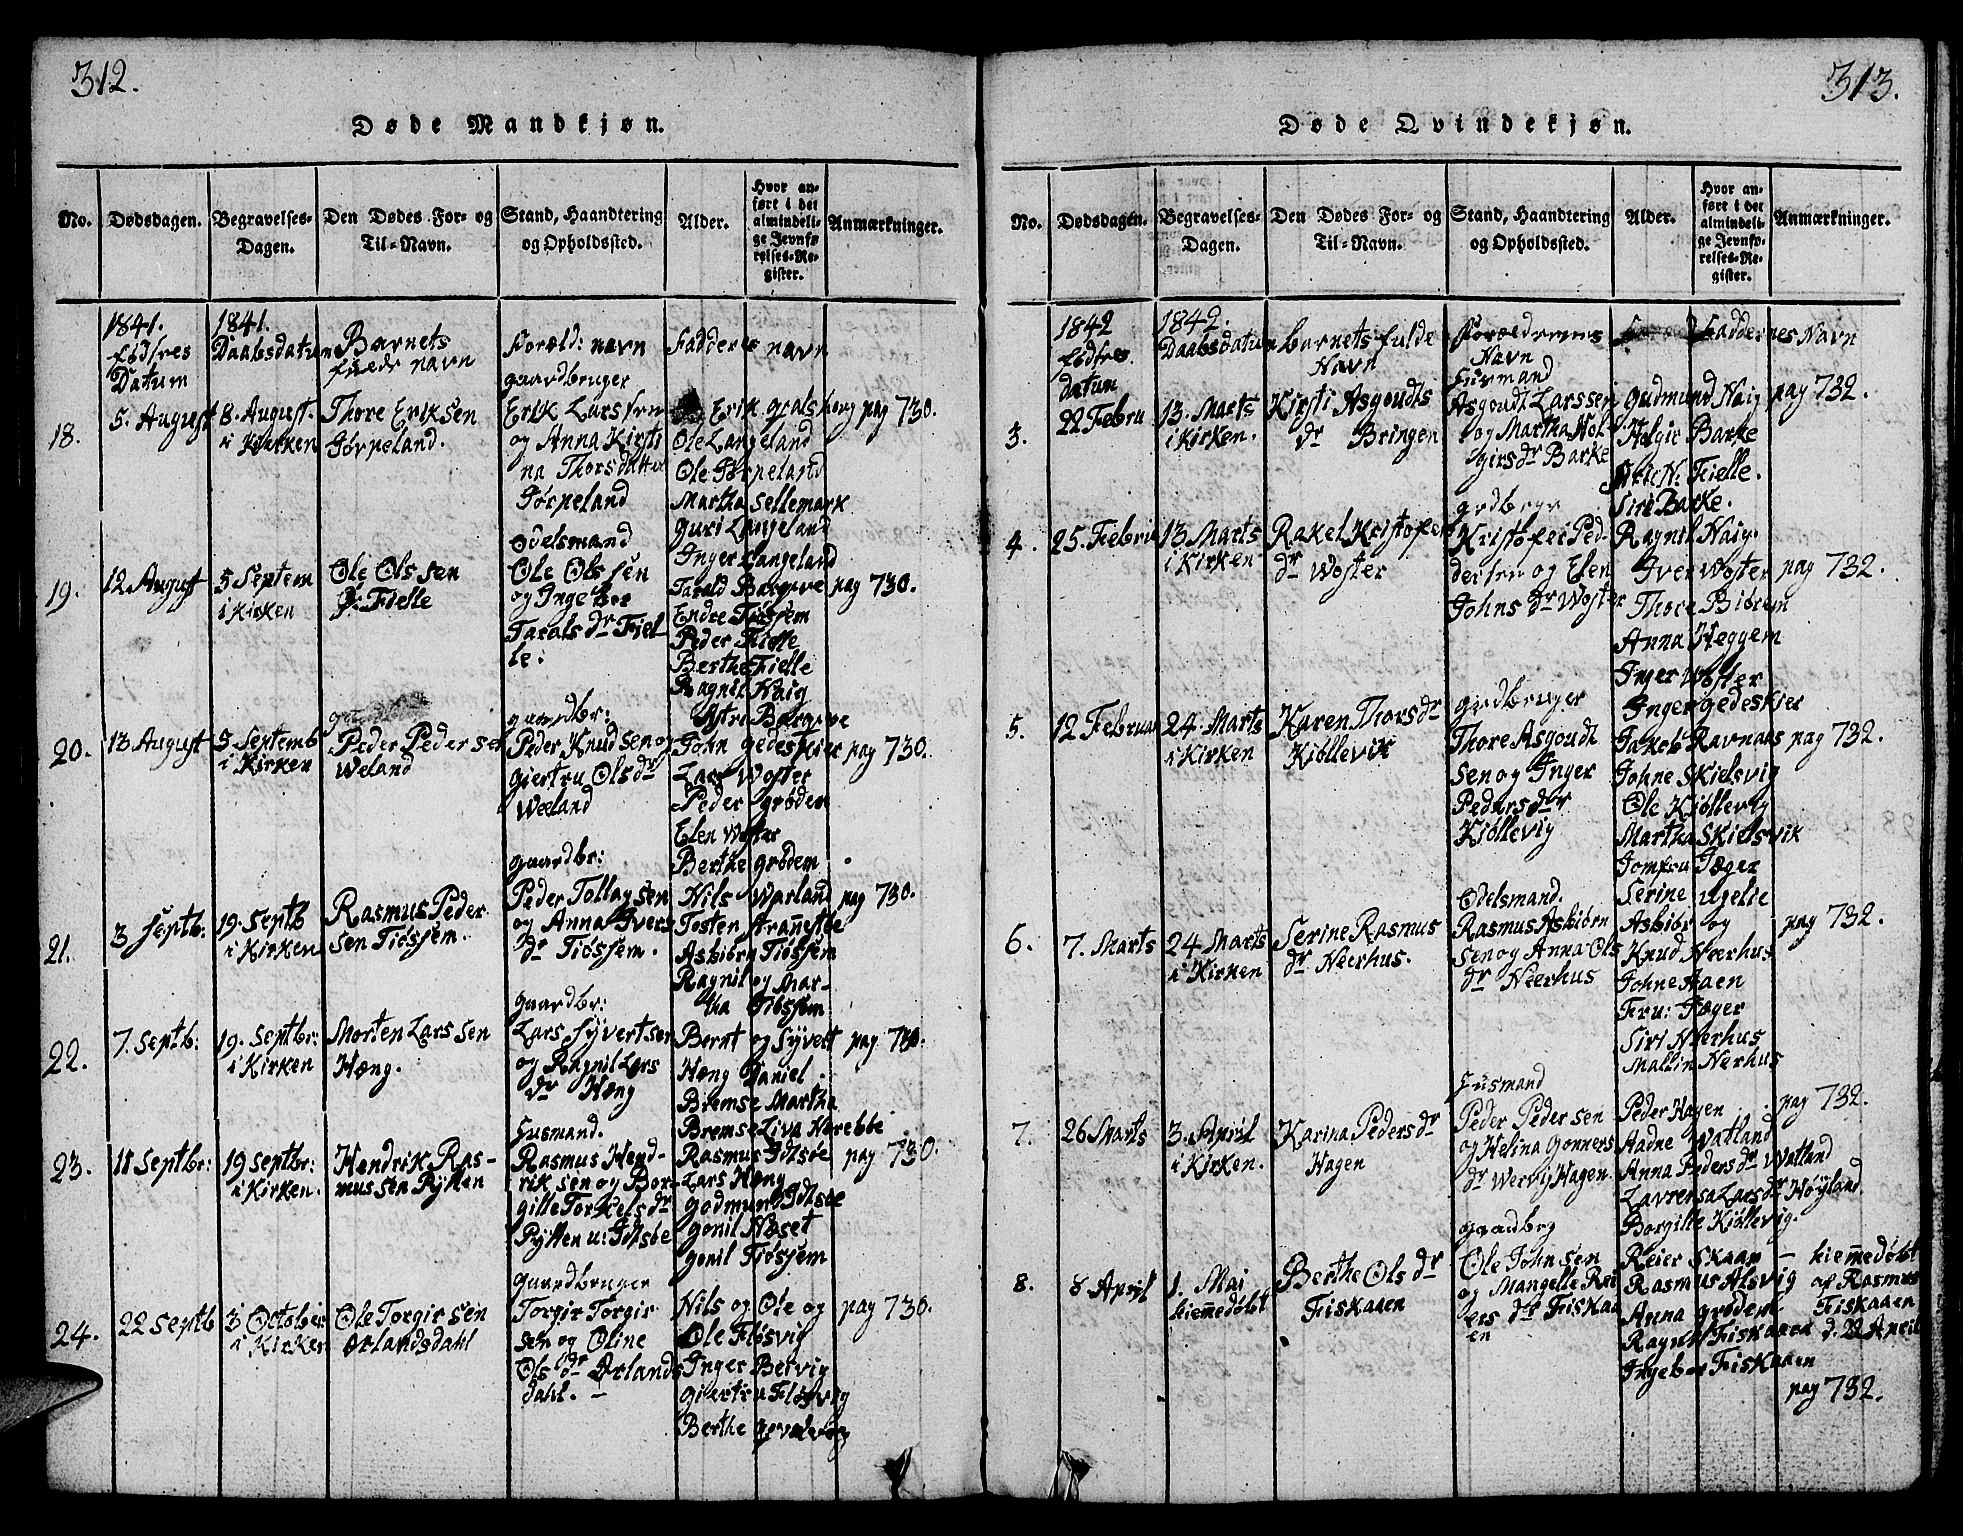 312.
Døde Mandkjøn.
No.
Dødsdagen.
Begravelses-
Dagen.
Den Dødes For- og
Til-Navn.
Stand, Haandtering
og Opholdssted.
Alder.
Hvor an-
ført i det
almindeli-
ge Jevnfø-
relses-Re-
gister.
Anmærkninger.
1841.
fødsres
Datum
1841.
Daabsdatum
Barnets
fulde navn
Foræld: navn
Faddernes navn
18.
5. August
8. August.
i Kirken
Thore Eriksen
Jørpeland.
gaardbruger
Erik Larssen
og Anna Kirsti
na Thorsdatter
Jørpeland
Erik
Ole Langeland
Ole Jørpeland
Martha Sellemark
Guri Langeland
Inger Langeland
pag 730.
19.
12 August
5 Septem
i Kirken
Ole Olssen
Fielle
Odelsmand
Ole Olssen
og Ingebor
Tarals dr Fiel-
le.
Tarald Bargeve
Endre Tiøssem
Peder Fielle
Berthe Fielle
Ragnil Naig
Astri Bargeve
pag 730.
20.
13 August
5 Septemb
i Kirken
Peder Pedersen
Weland
gaardbr:
Peder Knudsen og
Giertru Ols dr
Weland
John Gedeskier
Lars Woster
Peder Grødem
Elen Woster
Berthe Grødem
pag 730.
21.
3 Septb:
19. Septb
i Kirken
Rasmus Peder
sen Tiøssem.
gaardbr:
Peder Tollagsen
og Anna Ivers
dr Tiøssem.
Nils Warland
Tosten Strannebøe
Asbiørg Tiøssem
Ragnil og Mar-
tha Tiøssem
pag 730.
22.
7. Septb:
19. Septbr:
i Kirken
Morten Larssen
Hæng.
gaardbr:
Lars Syvertsen
og Ragnil Lars
dr Hæng
Bernt og Syvert
Hæng Daniel
Bremse Martha
Bremse Liva Nærebbe
pag 730.
23.
11 Septbr:
19 Septbr:
i Kirken.
Hendrik Ras-
mussen Pytten
Husmand.
Rasmus Hend-
riksen og Bor-
gille Torkels dr
Pytten u: Idtsøe
Rasmus Idtsøe
Lars Hæng
Godmund Idtsøe
Gonil Næset
Gonil Tiøssem
pag 730.
24.
22 Septb
3 October
i Kirken
Ole Torgirsen
Ørlandsdahl
gaardbruger
Torgir Torgir-
sen og Oline
Ols dr Ørlands
dahl. —
Nils og Ole og
Ole Fløsvig
Inger Bervig
Giertru Fløsvig
Berthe
pag 730.
313.
Døde Qvindekjøn.
No.
Dødsdagen.
Begravelses-
Dagen.
Den Dødes For- og
Til-Navn.
Stand, Haandtering
og Opholdssted.
Alder.
Hvor an-
ført i det
almindeli-
ge Jevnfø-
relses-Re-
gister.
Anmærkninger.
1842
fødsres.
datum
1842.
Daabsdatum
barnets fulde
Navn
Forældrenes
Navn
Faddernes Navn
3.
22 Febru
13. Marts
i Kirken.
Kirsti Asgoudts
dr Bringen
Husmand
Asgoudt Larssen
og Martha Hol-
girs dr Barke
Gudmund Naig
Holgir Barke
Fielle.
Siri Barke.
Ragnil Naig.
pag 732.
4.
25. Februa
13 Marts
i Kirken
Rakel Kristofer
dr Woster
grdbrgr
Kristofer Ped-
dersen og Elen
Johns dr Woster
Iver Woster
Thore Biørem
Anna Heggem
Inger Woster
Inger Gedeskier
pag 732.
5.
12 Februar
24 Marts
i Kirken
Karen Thors dr
Kiøllevik
grdbruger
Thore Asgoudt
sen og Inger
Peders dr
Kiøllevig
Jakob Ravnaas
Johne Skielsvig
Ole Kiøllevig
Martha Skielsvik
Jomfru Jæger
Serine Ugelie
pag 732.
6.
7. Marts
24 Marts
i Kirken
Serine Rasmus
dr Neerhus.
Odelsmand.
Rasmus Asbiørn
sen og Anna Ols
dr Neerhus
Asbiør og
Knud Neerhus
Johne Aaen
Fru: Jæger
Siri Neerhus
Mallin Nerhus
pag 732.
7.
26 Marts
3. April
i Kirken.
Karina Peders dr
Hagen
Husmand
Peder Pedersen
og Helina Gonners
dr Wervig Hagen.
Peder Hagen
Aadne Watland
Anna Peders dr Watland
Lavrensa Lars dr Høyland
Borgilte Kiøllevig.
pag 732.
8.
8 April
1. Mai
hiemedøbt
Berthe Ols dr
Fiskaaen
gaardbrg
Ole Johnsen
og Mangelle Rei
ers dr Fiskaa
en
Reier Skaar —
Rasmus Alsvig
Anna Grødem
Ragnil Fiskaaen
Ingebor Fiskaaen
hiemedøbt
af Rasmus
Fiskaaen
d. 22 April
pag 732.